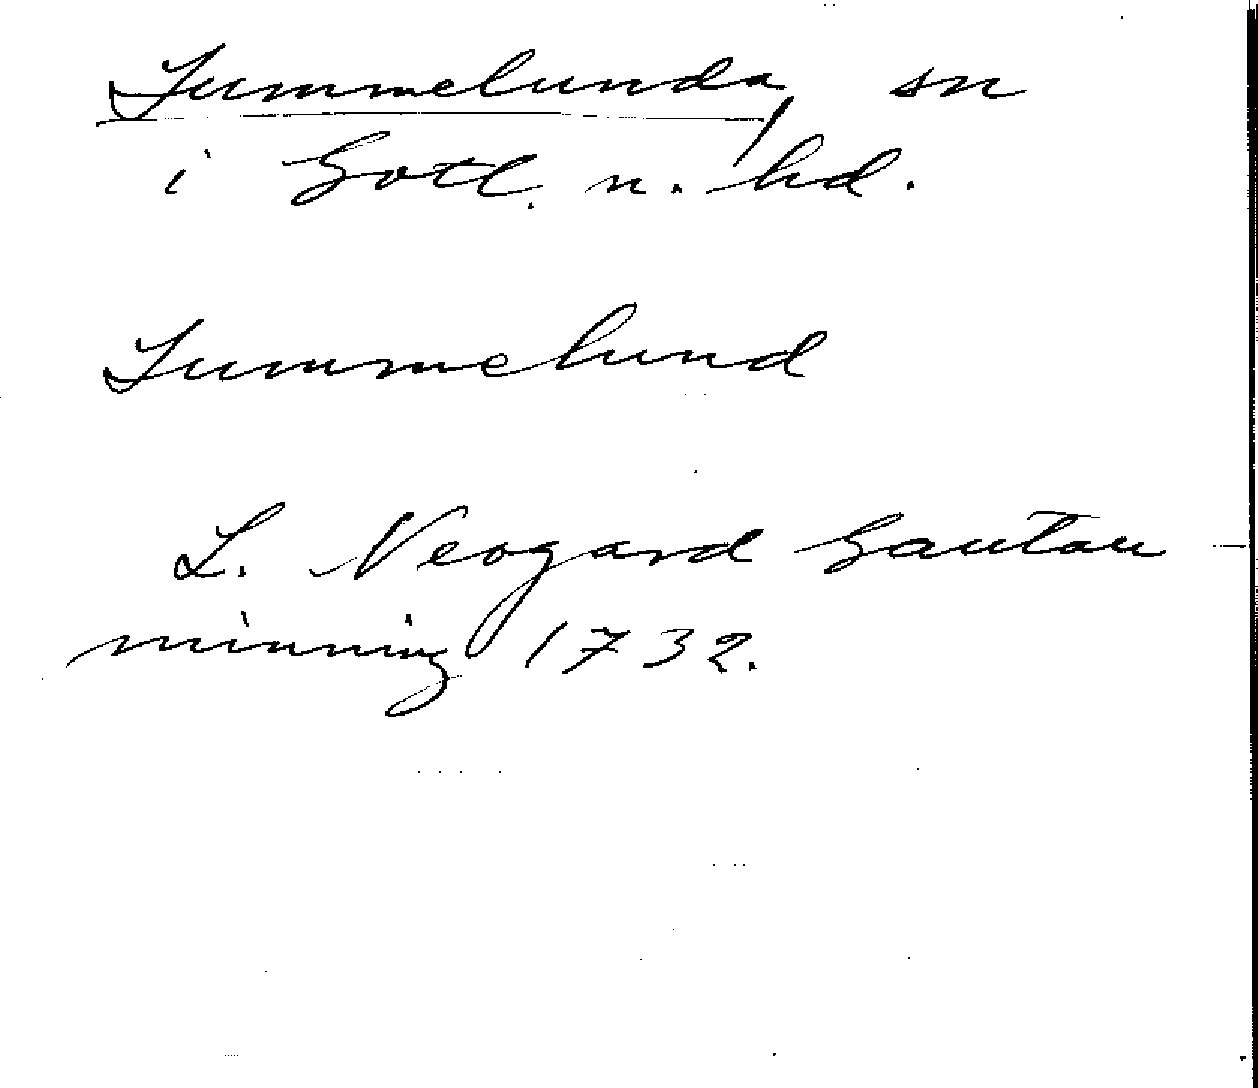 Lummelunda, sn
i Gotl. n. hd.
Lummelund
L. Neogard Gautau
minning 1732.